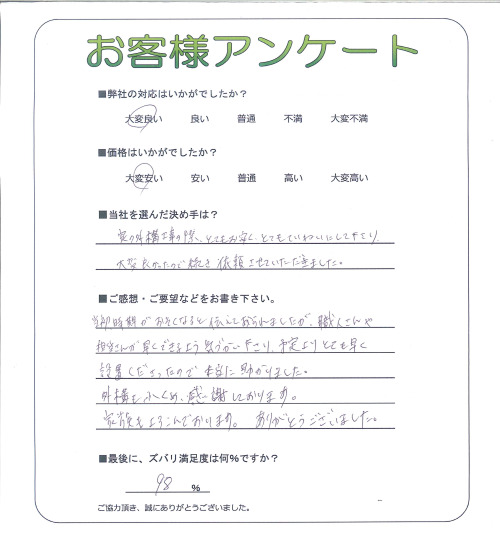 お客様アンケート
■弊社の対応はいかがでしたか?
大変良い 良い 普通 不満 大変不満
■価格はいかがでしたか?
大変安い 安い 普通 高い 大変高い
■当社を選んだ決め手は?
家の外構工事の際、とてもお安く、とてもていねいにして下さり
大変良かったので続き依頼させていただきました。
■ご感想・ご要望などをお書き下さい。
時期がおそくなると伝えておられましたが、職人さんや
担当さんが早くできるよう気づかい下さり、予定よりとても早く
設置くださったので本当に助かりました。
外構もふくめ、感謝しております。
家族もよろこんでおります。 ありがとうございました。
■最後に、ズバリ満足度は何%ですか?
98 %
ご協力頂き、誠にありがとうございました。